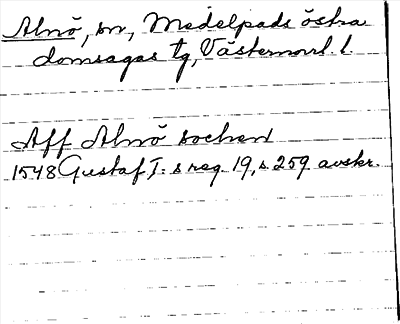 Alnö, sn, Medelpads östra
domsagas tg, Västernorrl. l.
Aff Alnö sochen
1548 Gustaf I:s reg. 19, s. 259 avskr.